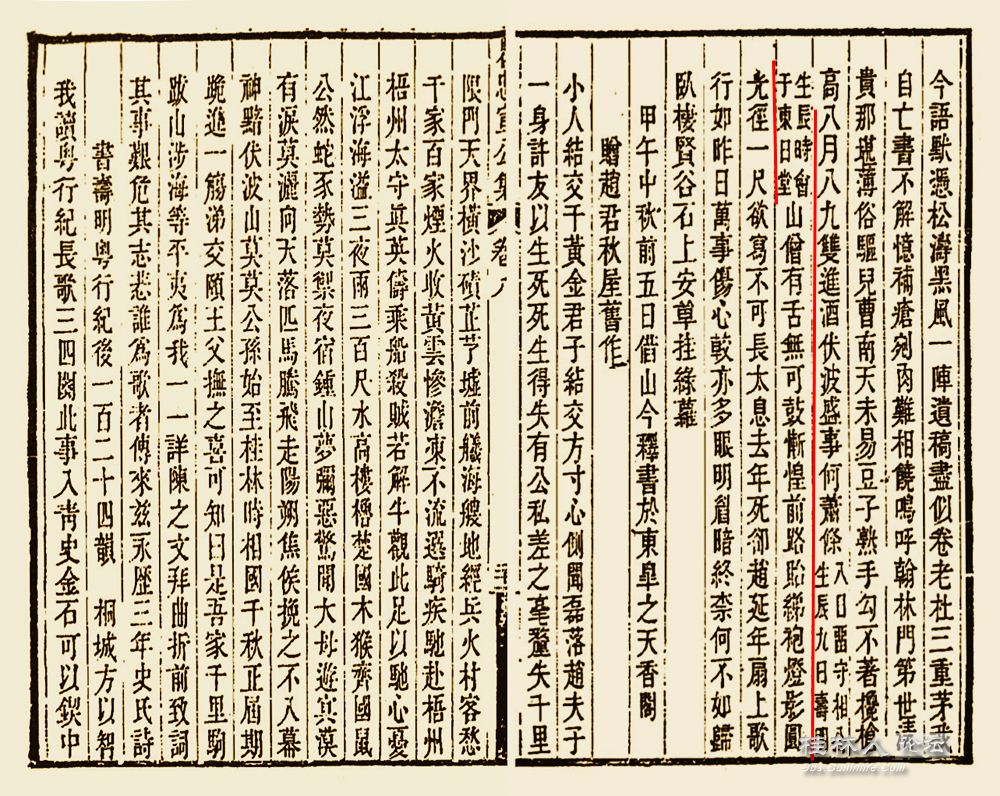 今語獸憑松濤黑風一陣遺稿盡似卷老杜三重茅我
自亡書不解憶補瘡剜肉難相饒嗚呼翰林門第世
貴那堪薄俗驅兒曹南天未易豆子熟手勾不著欃槍
高八月八九雙進酒伏波盛事何蕭條八日畱守相公
生辰九日壽明
生辰時會
于東日堂山僧有舌無可鼓慚惶前路貽綈袍燈影圓
光徑一尺欲寫不可長太息去年死卻趙延年扇上歌
行如昨日萬事傷心較亦多眼明眉暗終柰何不如歸
臥棲賢谷石上安草挂綠蘿
甲午中秋前五日借山今釋書於東皐之天香閣
贈趙君秋屋舊作
小人結交千黃金君子結交方寸心側聞磊落趙夫子
一身許友以生死死生得失有公私差之毫釐失千里
忠宣公集
卷八
限門天界橫沙磧芷芓墟前艤海艘地經兵火村客愁
千家百家煙火收黃雲慘澹凍不流邏騎疾馳赴梧州
梧州太守眞英儔乘船殺賊若解牛觀此足以馳心憂
江浮海溢三夜雨三百尺水高樓櫓楚國木猴齊國鼠
公然蛇豕勢莫禦夜宿鍾山夢彌惡驚聞大母遊冥漠
有淚莫灑向天落匹馬騰飛走陽朔焦侯挽之不入幕
神黯伏波山莫莫公孫始至桂林時相國千秋正屆期
跪進一觴涕交頤王父撫之喜可知曰是吾家千里駒
跋山涉海等平夷爲我一一詳陳之文拜曲折前致詞
其事艱危其志悲誰爲歌者傳來玆永歷三年史氏詩
書壽明粤行紀後一百二十四韻 桐城方以智
我讀粤行紀長歌三四闋此事入靑史金石可以鍥中
桂林人论坛